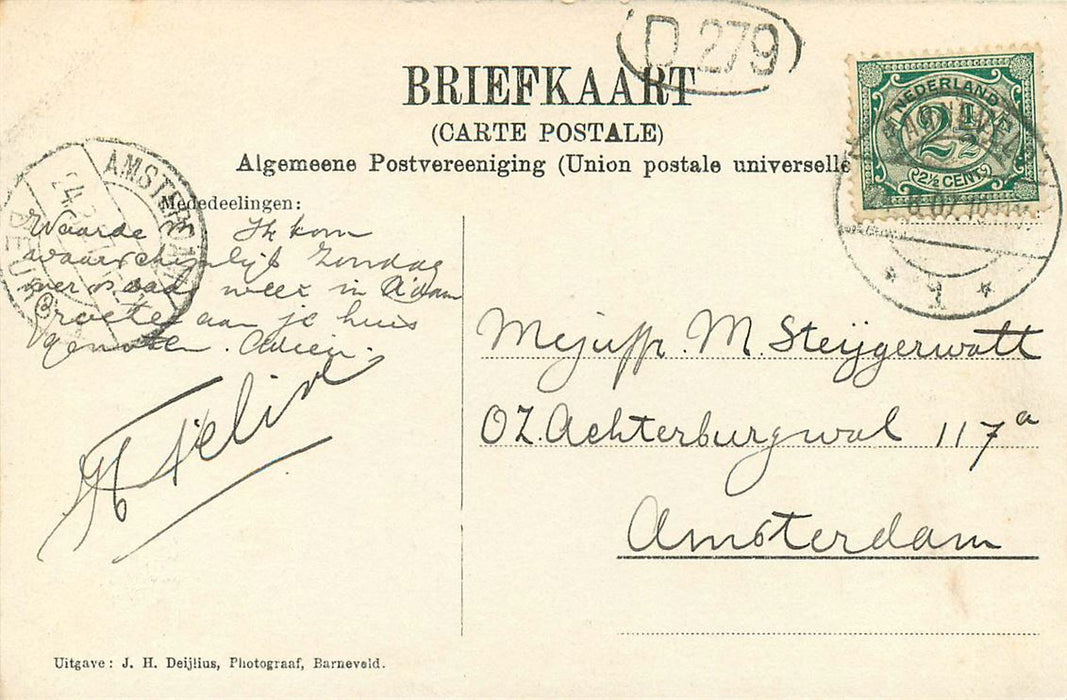 D 279
BRIEFKAART
(CARTE POSTALE)
Algemeene Postvereeniging (Union postale universelle
NEDERLAND
2½
2½ CENT
AMSTERDAM
24.
Mededeelingen:
Waarde M. Ik kom
waarschijnlijk Zondag
over 8 daag week in A'dam
Groeten aan je huis
genoten. Adieu.
Mejuffr. M. Steijgerwalt
OZ. Achterburgwal 117a
Amsterdam
Uitgave: J. H. Deijlius, Photograaf, Barneveld.